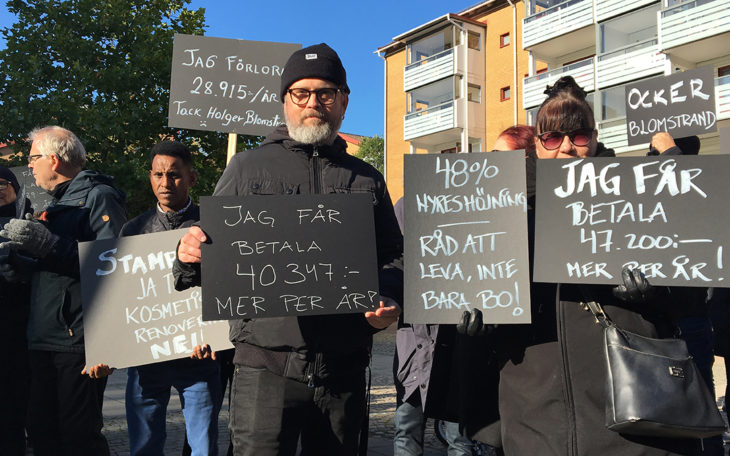 JAG FÖRLORA
28.915:-/ÅR
TACK HOLGER BLOMST
OCKER
BLOMSTRAND
STAMP
JA T
KOSMET
RENOVER
NEJ
JAG FÅR
BETALA
40 347:-
MER PER ÅR?
48%
HYRESHÖJNING
RÅD ATT
LEVA, INTE
BARA BO!
JAG FÅR
BETALA
47.200:-
MER PER ÅR!